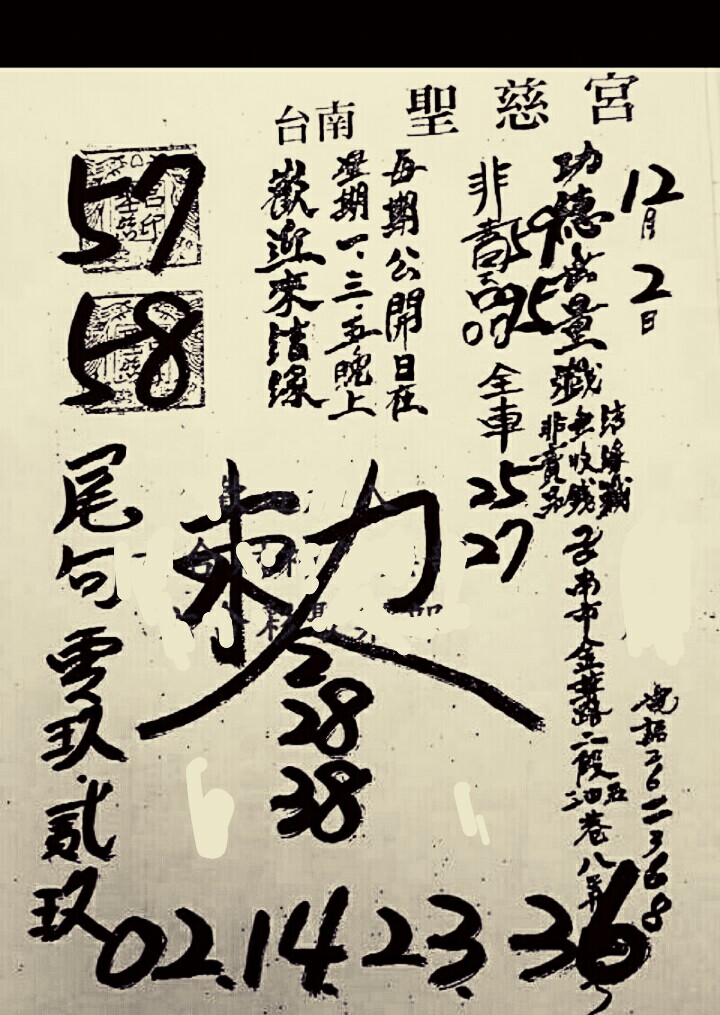 台南 聖慈宮
12月2日
功德無量
結緣
無收錢
非賣品
台南市金華路二段
巷八弄
電話2622368
非賣品
59
95
全車
25
27
每期公開日在
星期一、三、五晚上
歡迎來結緣
57
58
敕
2
28
38
尾句零玖.貳玖
02.14.23.36